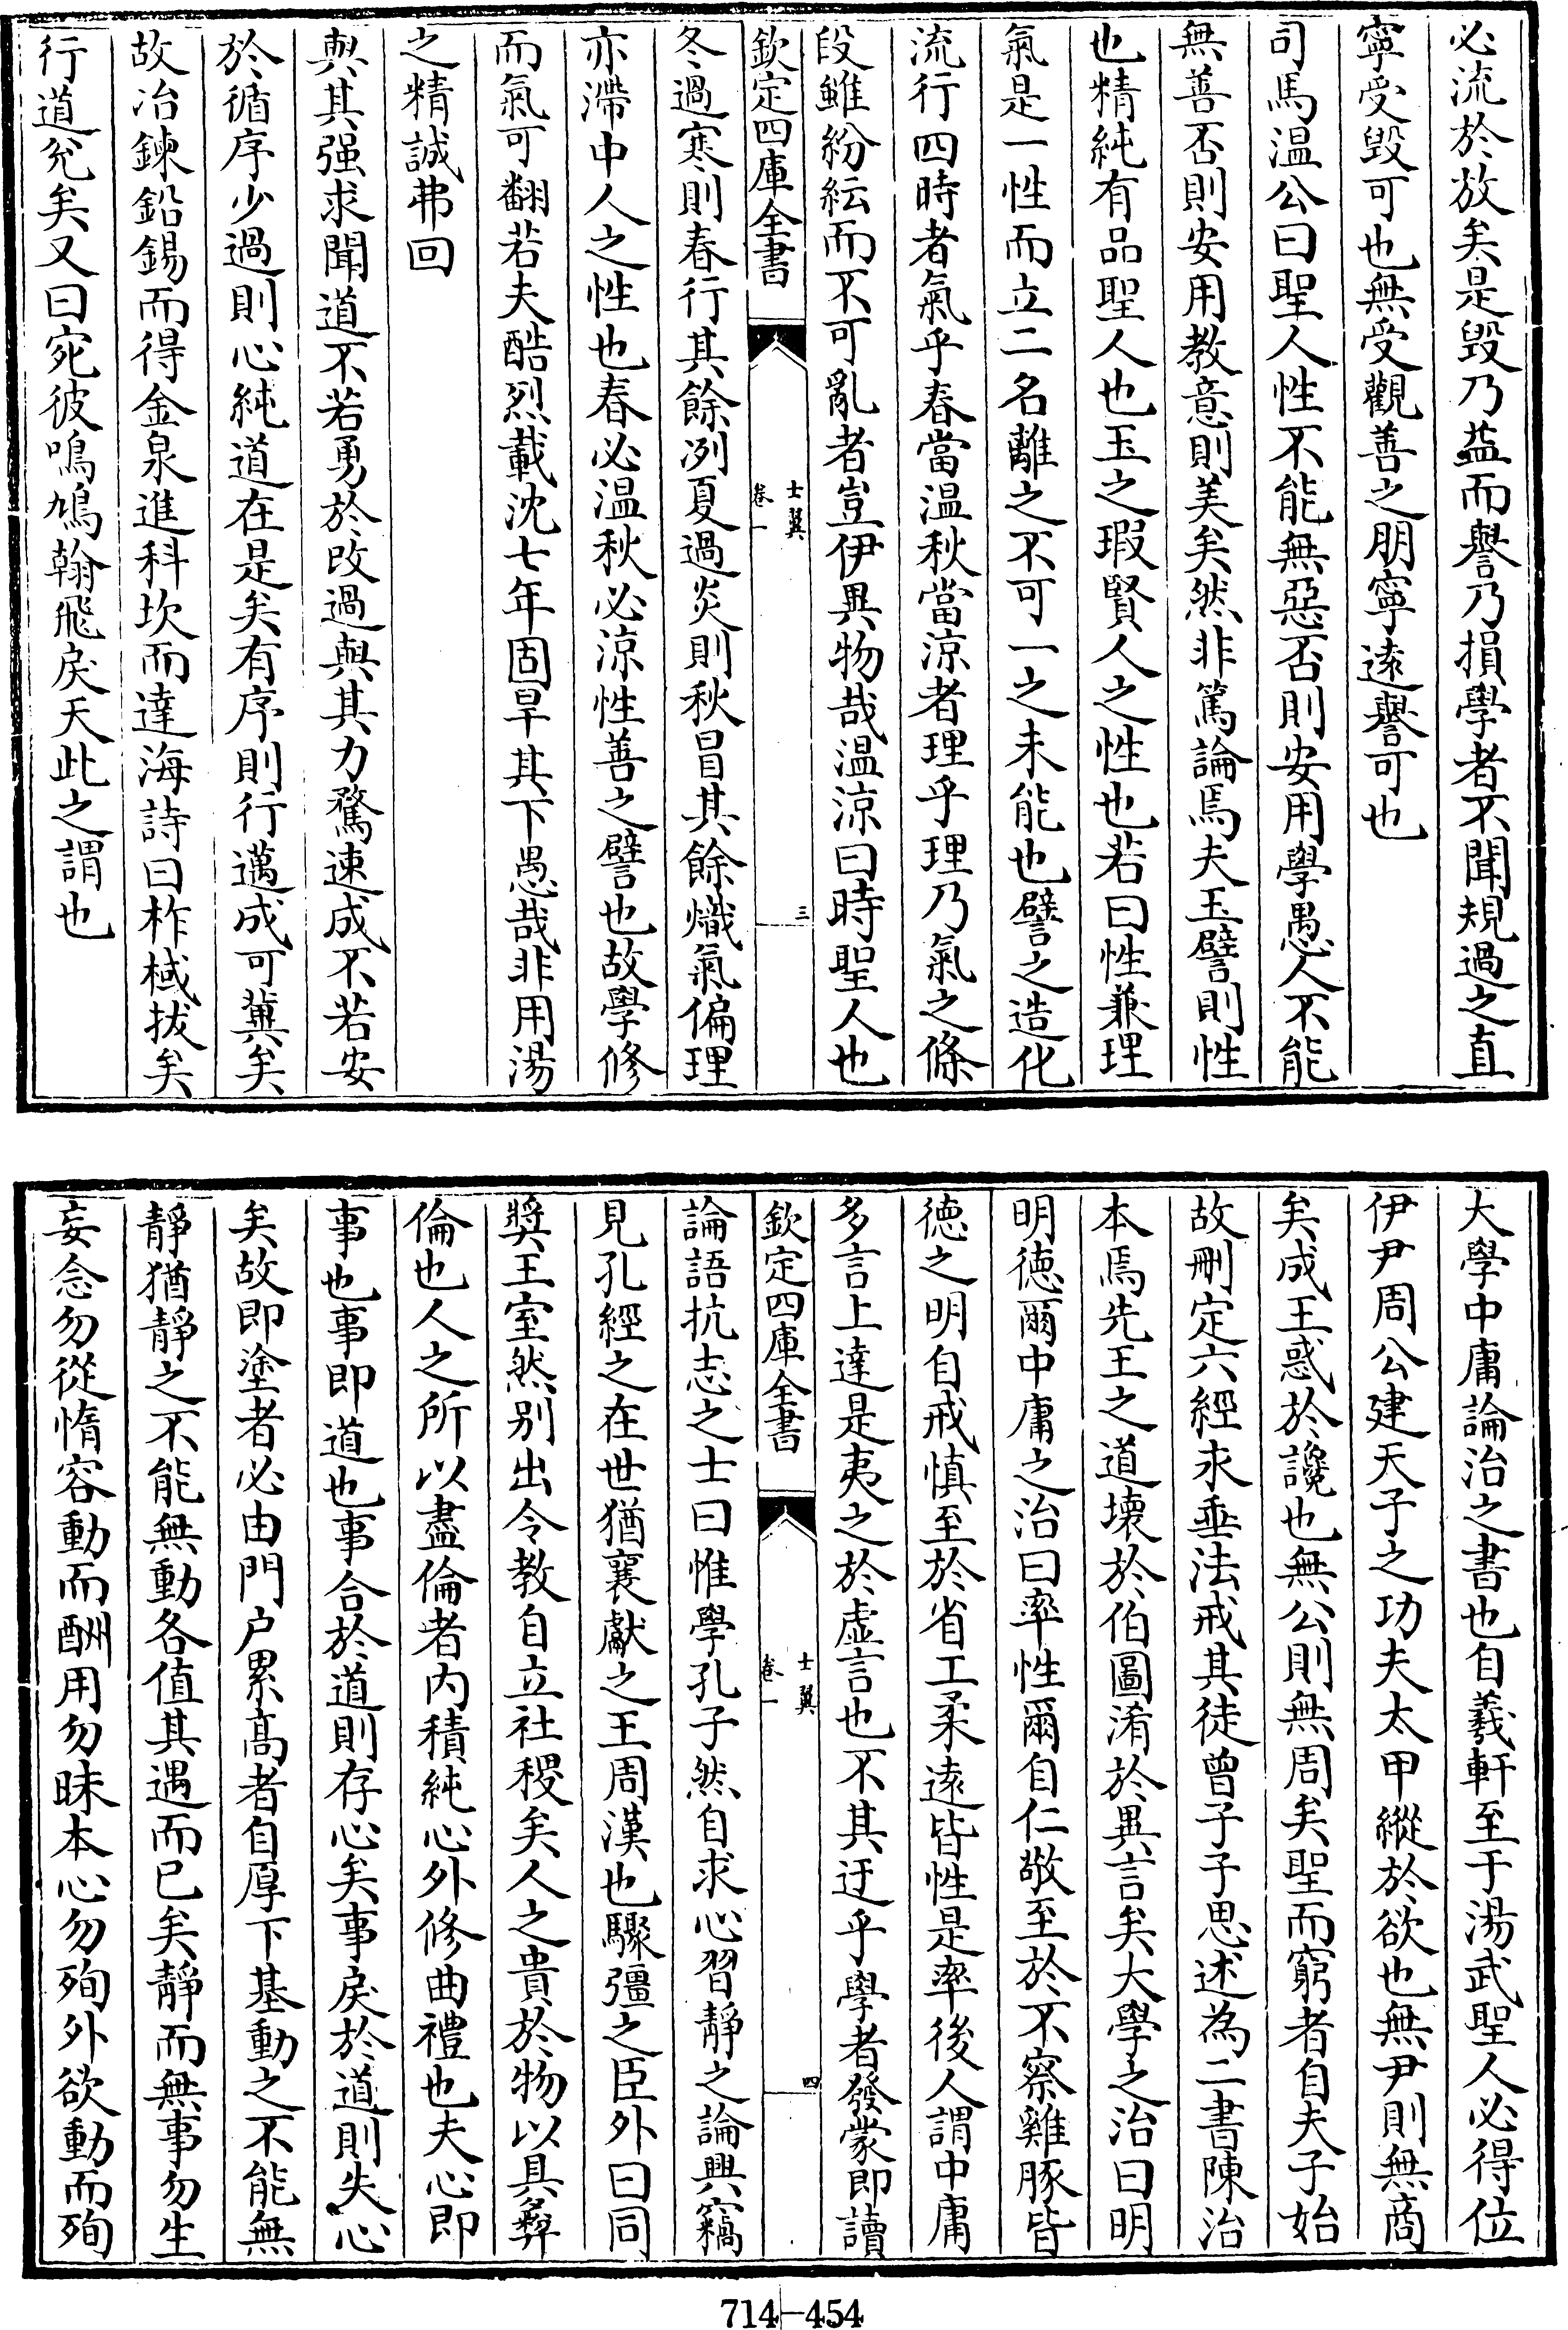 必流於放矣是毀乃益而譽乃損學者不聞規過之直
寧受毀可也無受觀善之朋寧遠譽可也
司馬温公曰聖人性不能無惡否則安用學愚人不能
無善否則安用教意則美矣然非篤論焉夫玉譬則性
也精純有品聖人也玉之瑕賢人之性也若曰性兼理
氣是一性而立二名離之不可一之未能也譬之造化
流行四時者氣乎春當温秋當涼者理乎理乃氣之條
段雖紛紜而不可亂者豈伊異物哉温涼曰時聖人也
欽定四庫全書
士翼
卷一
三
冬過寒則春行其餘冽夏過炎則秋冒其餘熾氣偏理
亦滯中人之性也春必温秋必涼性善之譬也故學修
而氣可翻若夫酷烈載沈七年固旱其下愚哉非用湯
之精誠弗回
與其强求聞道不若勇於改過與其力騖速成不若安
於循序少過則心純道在是矣有序則行邁成可冀矣
故冶鍊鉛錫而得金泉進科坎而達海詩曰柞棫拔矣
行道兊矣又曰宛彼鳴鳩翰飛戾天此之謂也
大學中庸論治之書也自羲軒至于湯武聖人必得位
伊尹周公建天子之功夫太甲縱於欲也無尹則無商
矣成王惑於讒也無公則無周矣聖而窮者自夫子始
故刪定六經永垂法戒其徒曾子子思述為二書陳治
本焉先王之道壞於伯圖淆於異言矣大學之治曰明
明德爾中庸之治曰率性爾自仁敬至於不察雞豚皆
德之明自戒慎至於省工柔遠皆性是率後人謂中庸
多言上達是夷之於虚言也不其迂乎學者發蒙即讀
欽定四庫全書
士翼
卷一
四
論語抗志之士曰惟學孔子然自求心習靜之論興竊
見孔經之在世猶襄獻之王周漢也驟彊之臣外曰同
獎王室然别出令教自立社稷矣人之貴於物以具彛
倫也人之所以盡倫者内積純心外修曲禮也夫心即
事也事即道也事合於道則存心矣事戾於道則失心
矣故即塗者必由門户累髙者自厚下基動之不能無
靜猶靜之不能無動各值其遇而已矣靜而無事勿生
妄念勿從惰容動而酬用勿昧本心勿殉外欲動而殉
714-454